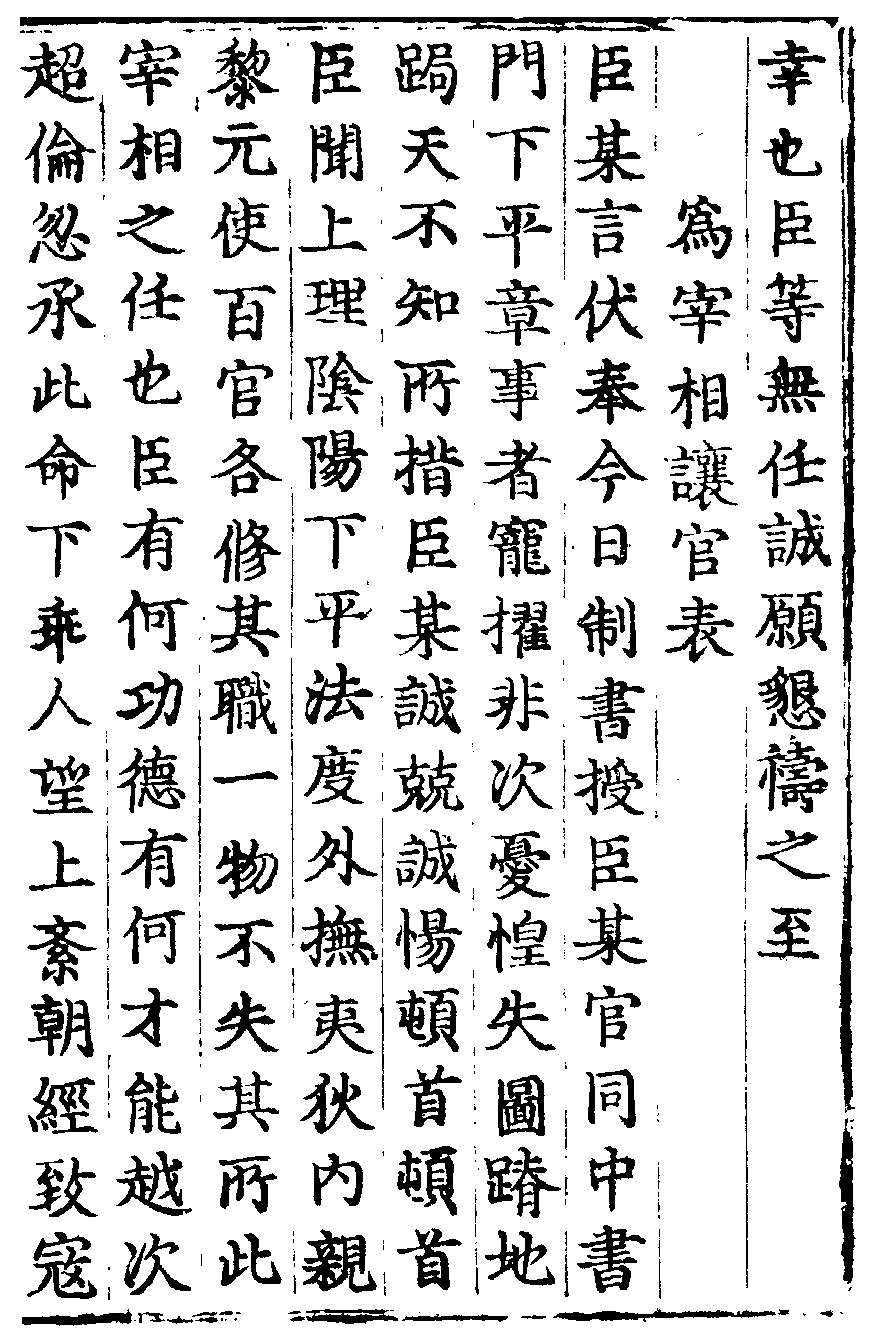 幸也臣等無任誠願懇禱之至
爲宰相讓官表
臣某言伏奉今日制書授臣某官同中書
門下平章事者寵擢非次憂惶失圖蹐地
跼天不知所措臣某誠兢誠惕頓首頓首
臣聞上理陰陽下平法度外撫夷狄内親
黎元使百官各修其職一物不失其所此
宰相之任也臣有何功德有何才能越次
超倫忽承此命下乖人望上紊朝經致寇